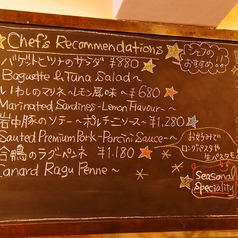 Chef's Recommendations
シェフの
おすすめ!!
バゲットとツナのサラダ ¥880
Baguette & Tuna Salad~
いわしのマリネ~レモン風味~ ¥680
Marinated Sardines-Lemon Flavour-~
岩中豚のソテー~ポルチーニソース~ ¥1,280
Sauted Premium Pork-Porcini Sauce-~
合鴨のラグーペンネ ¥1,180
Canard Ragu Penne~
お好みで
ロングパスタや
生パスタも
Seasonal
Speciality